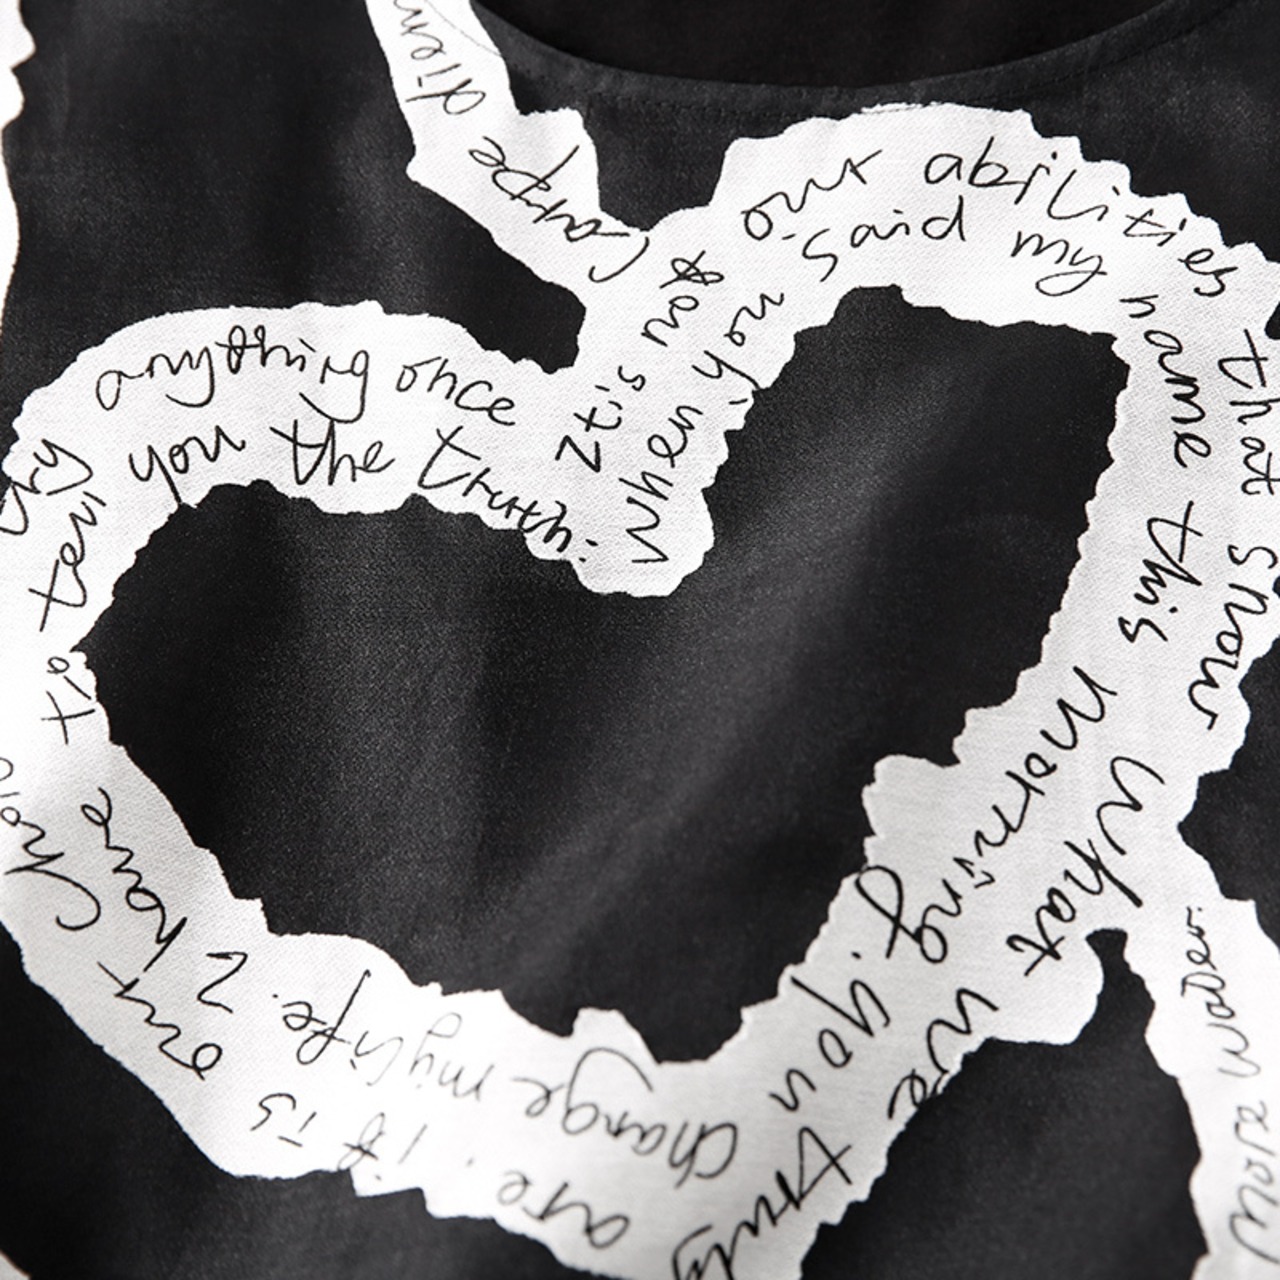 Carpe diem
It's not our abilities that show what we truly are. it is our choic
When you said my name this morning, you change my life. I have to tell you the truth.
try anything once
more water.